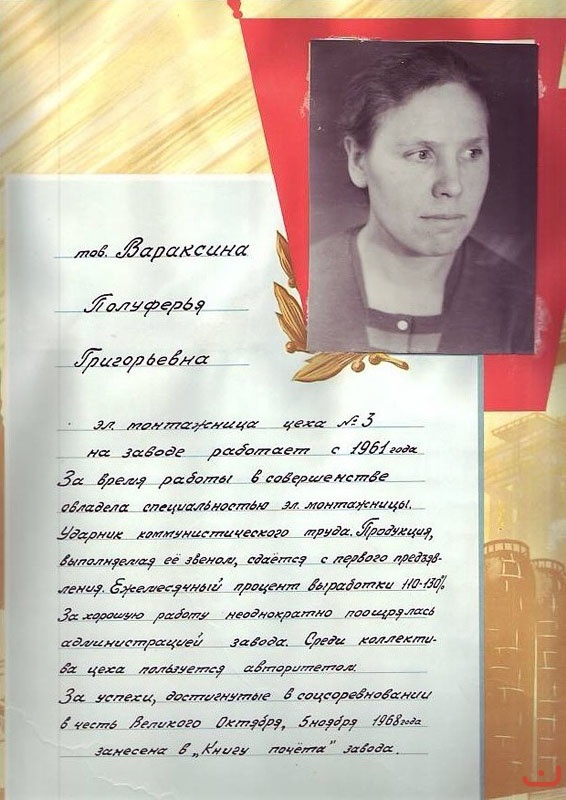 тов. Вараксина
Полуферья
Григорьевна
эл. монтажница цеха № 3
на заводе работает с 1961 года
За время работы в совершенстве
овладела специальностью эл. монтажницы.
Ударник коммунистического труда. Продукция,
выполняемая её звеном, сдаётся с первого предъяв-
ления. Ежемесячный процент выработки 110-130%
За хорошую работу неоднократно поощрялась
администрацией завода. Среди коллекти-
ва цеха пользуется авторитетом.
За успехи, достигнутые в соцсоревновании
в честь Великого Октября, 5 ноября 1968 года
занесена в „Книгу почёта" завода.